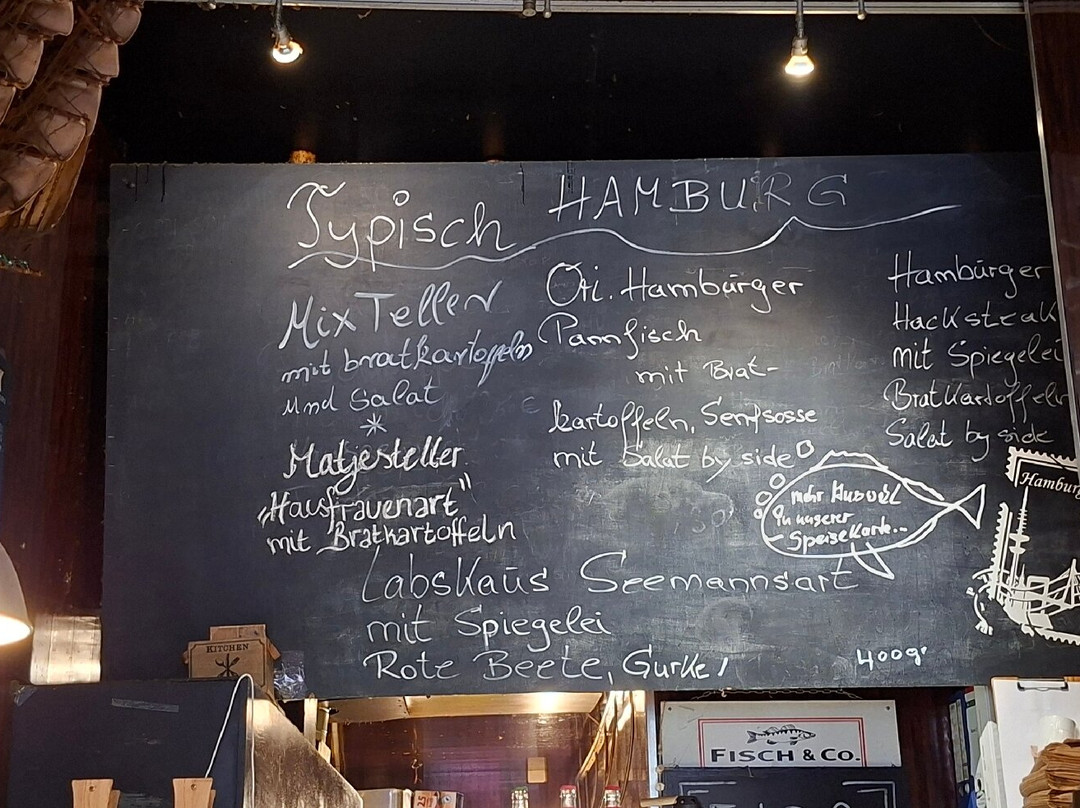 Typisch HAMBURG
Mix Teller
mit bratkartoffeln
und Salat
*
Matjesteller
"Hausfrauenart"
mit Bratkartoffeln
Ori. Hambūrger
Pannfisch
mit Brat-
kartoffeln, Senfsosse
mit Salat by side
Hambūrger
Hacksteak
mit Spiegelei
Bratkartoffeln
Salat by side
mehr Auswal
in unserer
Speisekarte...
Hamburg
Labskaūs Seemannsart
mit Spiegelei
Rote Beete, Gurke!
400gr
KITCHEN
FISCH & CO.